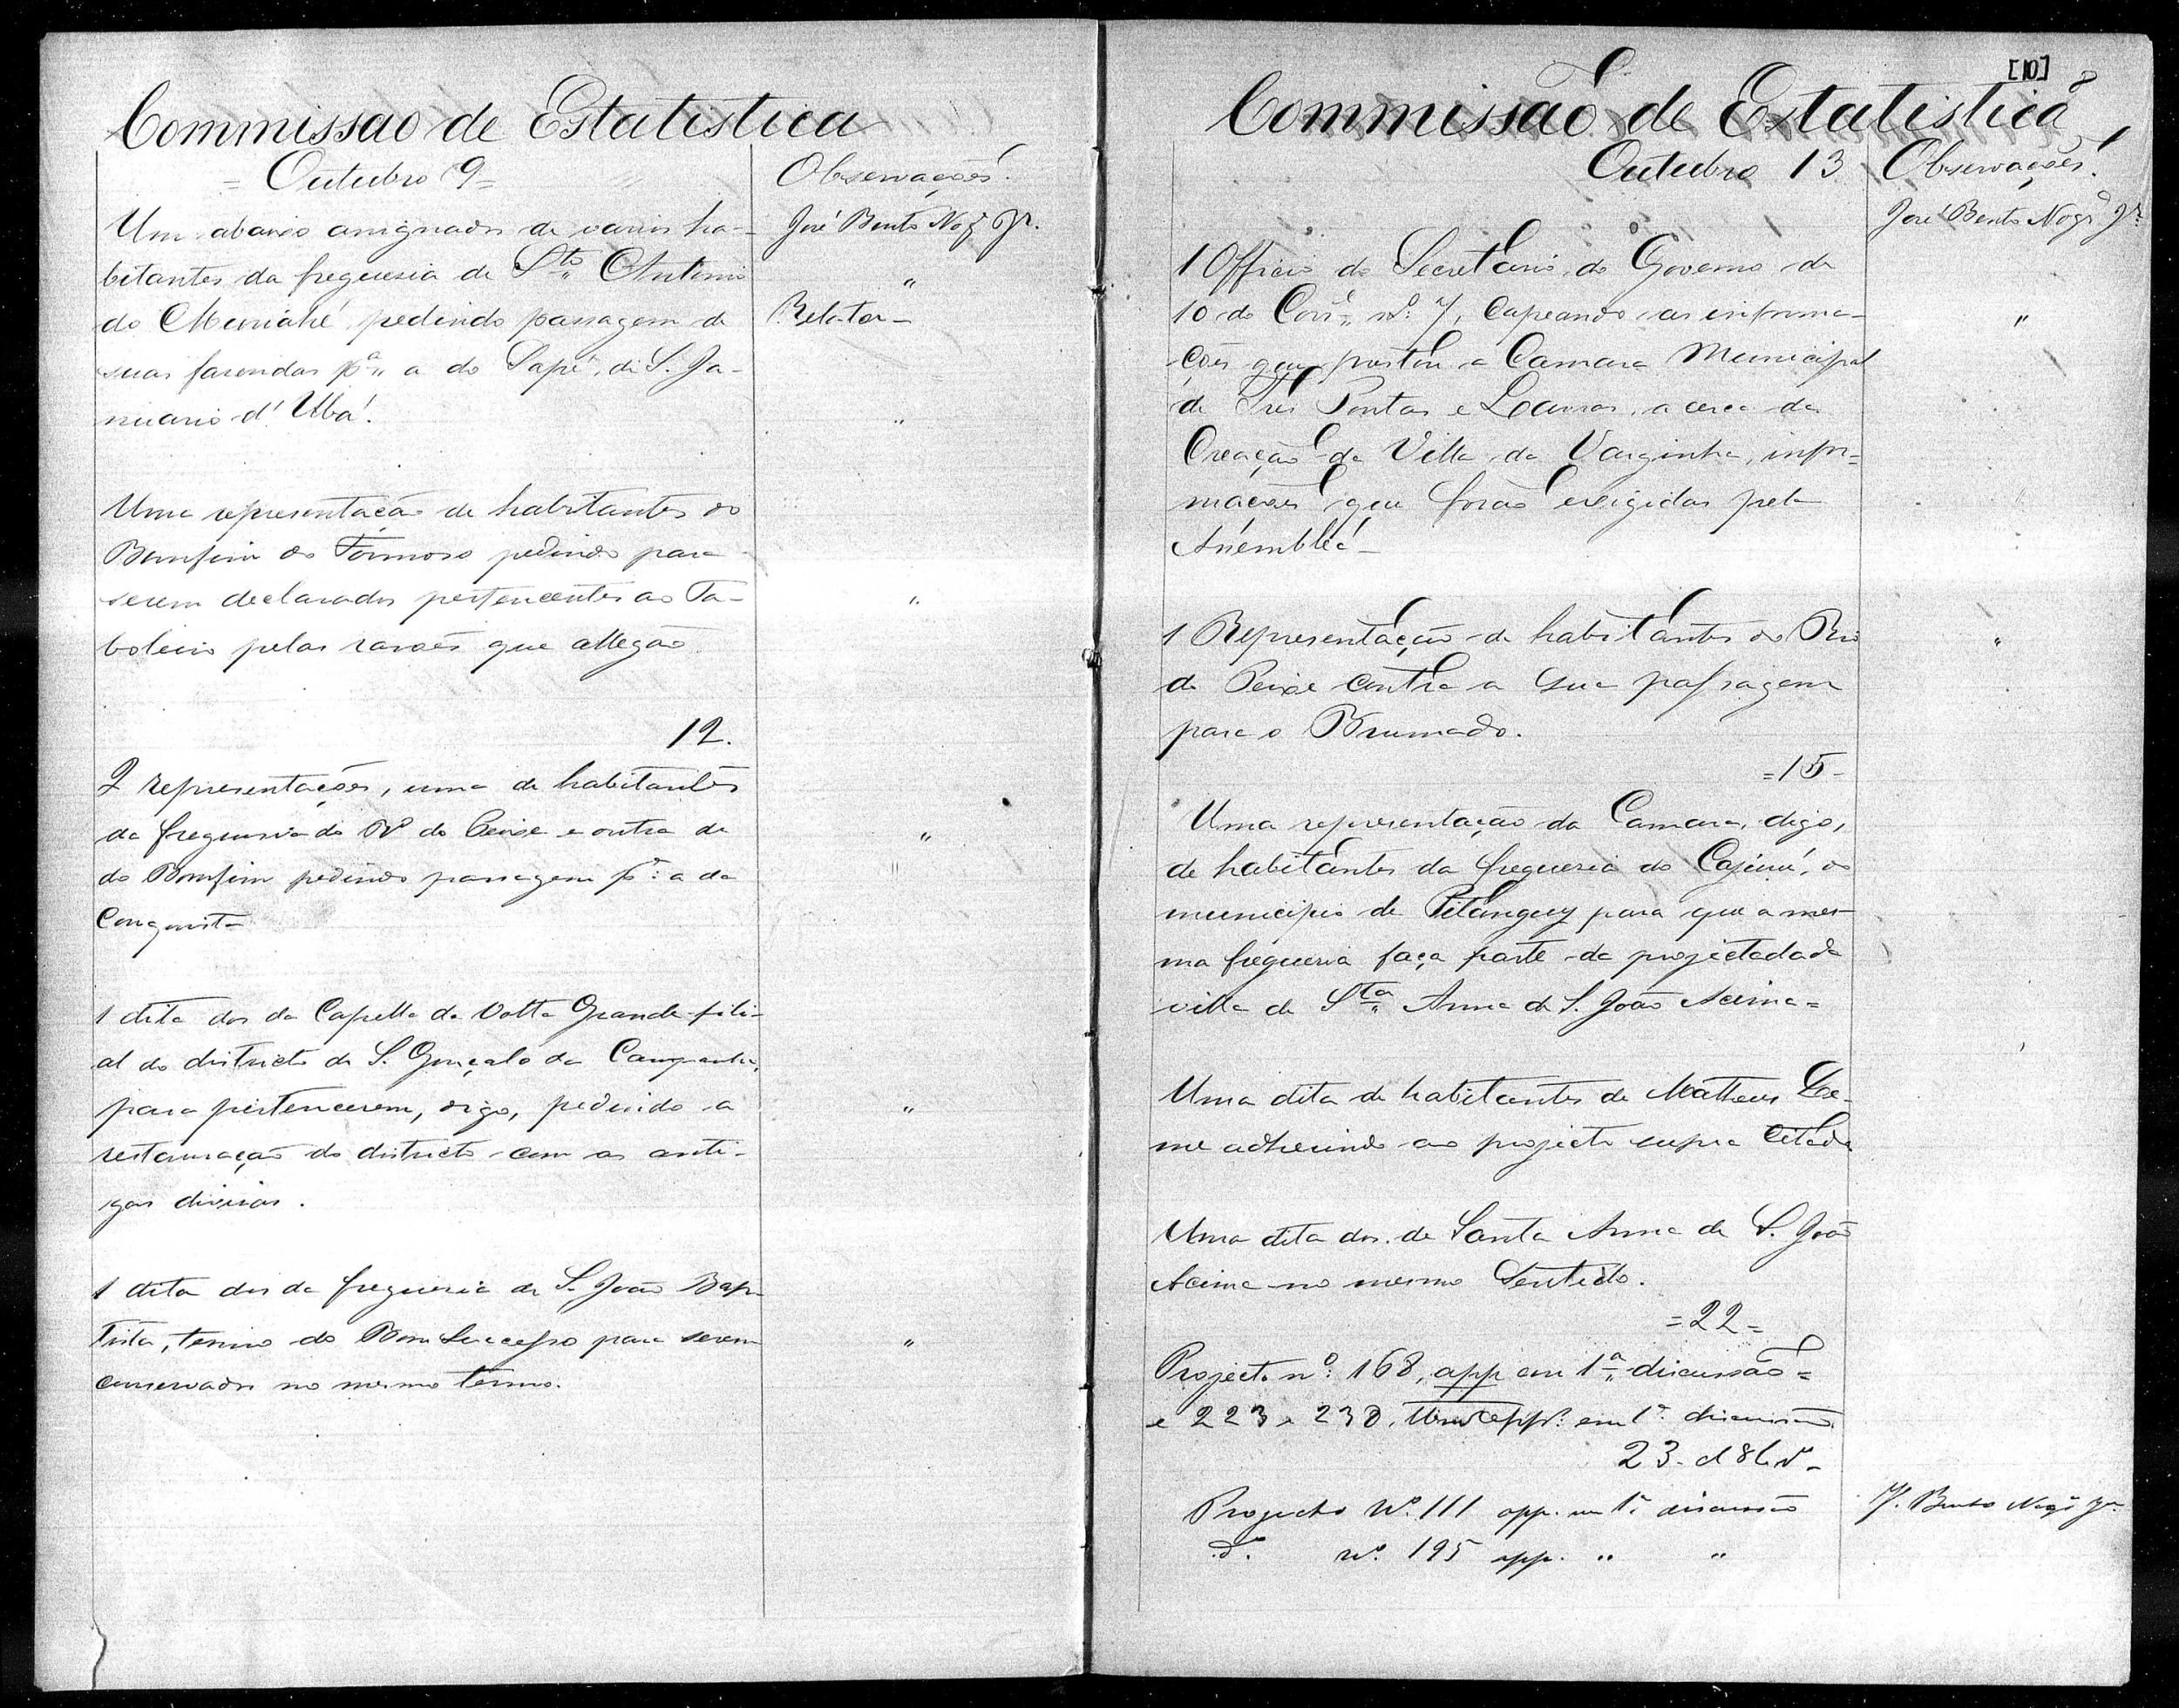 Commissão de Estatistica
= Outubro 9 =
Observações.
Um abaixo assignado de varios ha-
José Bento Nog.ª Jr.
bitantes da freguesia de S.to Antonio
"
do Muriahé, pedindo passagem de
Relator -
suas fazendas p.ª a do Sapé, de S. Ja-
nuario d'Ubá.
"
Uma representação de habitantes do
Bomfim do Formoso pedindo para
serem declarados pertencentes ao Ta-
"
boleiro pelas rasões que allegão.
12.
2 representações, uma de habitantes
da freguesia do R.º do Peixe e outra de
"
do Bomfim pedindo passagem p.ª a da
"
Conquista
1 dita dos da Capella da Volta Grande fili-
al do districto de S. Gonçalo da Campanha,
para pertencerem, digo, pedindo a
"
restauração do districto com as anti-
gas divisas.
1 dita dos da freguesia de S. João Bap-
tista, termo do Bom Successo para serem
"
conservados no mesmo termo.
[10]
8
Commissão de Estatistica
Outubro 13
Observações.
José Bento Nog.ª Jr.
1 Officio do Secretario do Governo de
10 do Corr.e n.º 7, Capeando as informa-
"
ções que prestou a Camara Municipal
de Tres Pontas e Lavras, a cerca da
Creação da Villa da Varginha, infor-
mações que forão exigidas pela
Assembléa -
1 Representação de habitantes do Rio
"
do Peixe contra a sua passagem
para o Brumado.
= 15 -
Uma representação da Camara, digo,
de habitantes da freguesia do Cajurú, do
municipio de Pitanguy para que a mes-
ma freguesia faça parte da projectadada
villa de S.ta Anna de S. João Acima =
Uma dita de habitantes de Matheus Le-
me adherindo ao projecto supra citado
Uma dita dos de Santa Anna de S. João
Acima no mesmo sentido.
= 22 =
Projecto n.º 168, app em 1.ª discussão =
e 223 e 238, app. em 1.ª discussão.
23 d 8br.º -
Projecto N.º 111 app. em 1.ª discussão
J. Bento Nog.ª Jr.
D.º n.º 195 app. " "